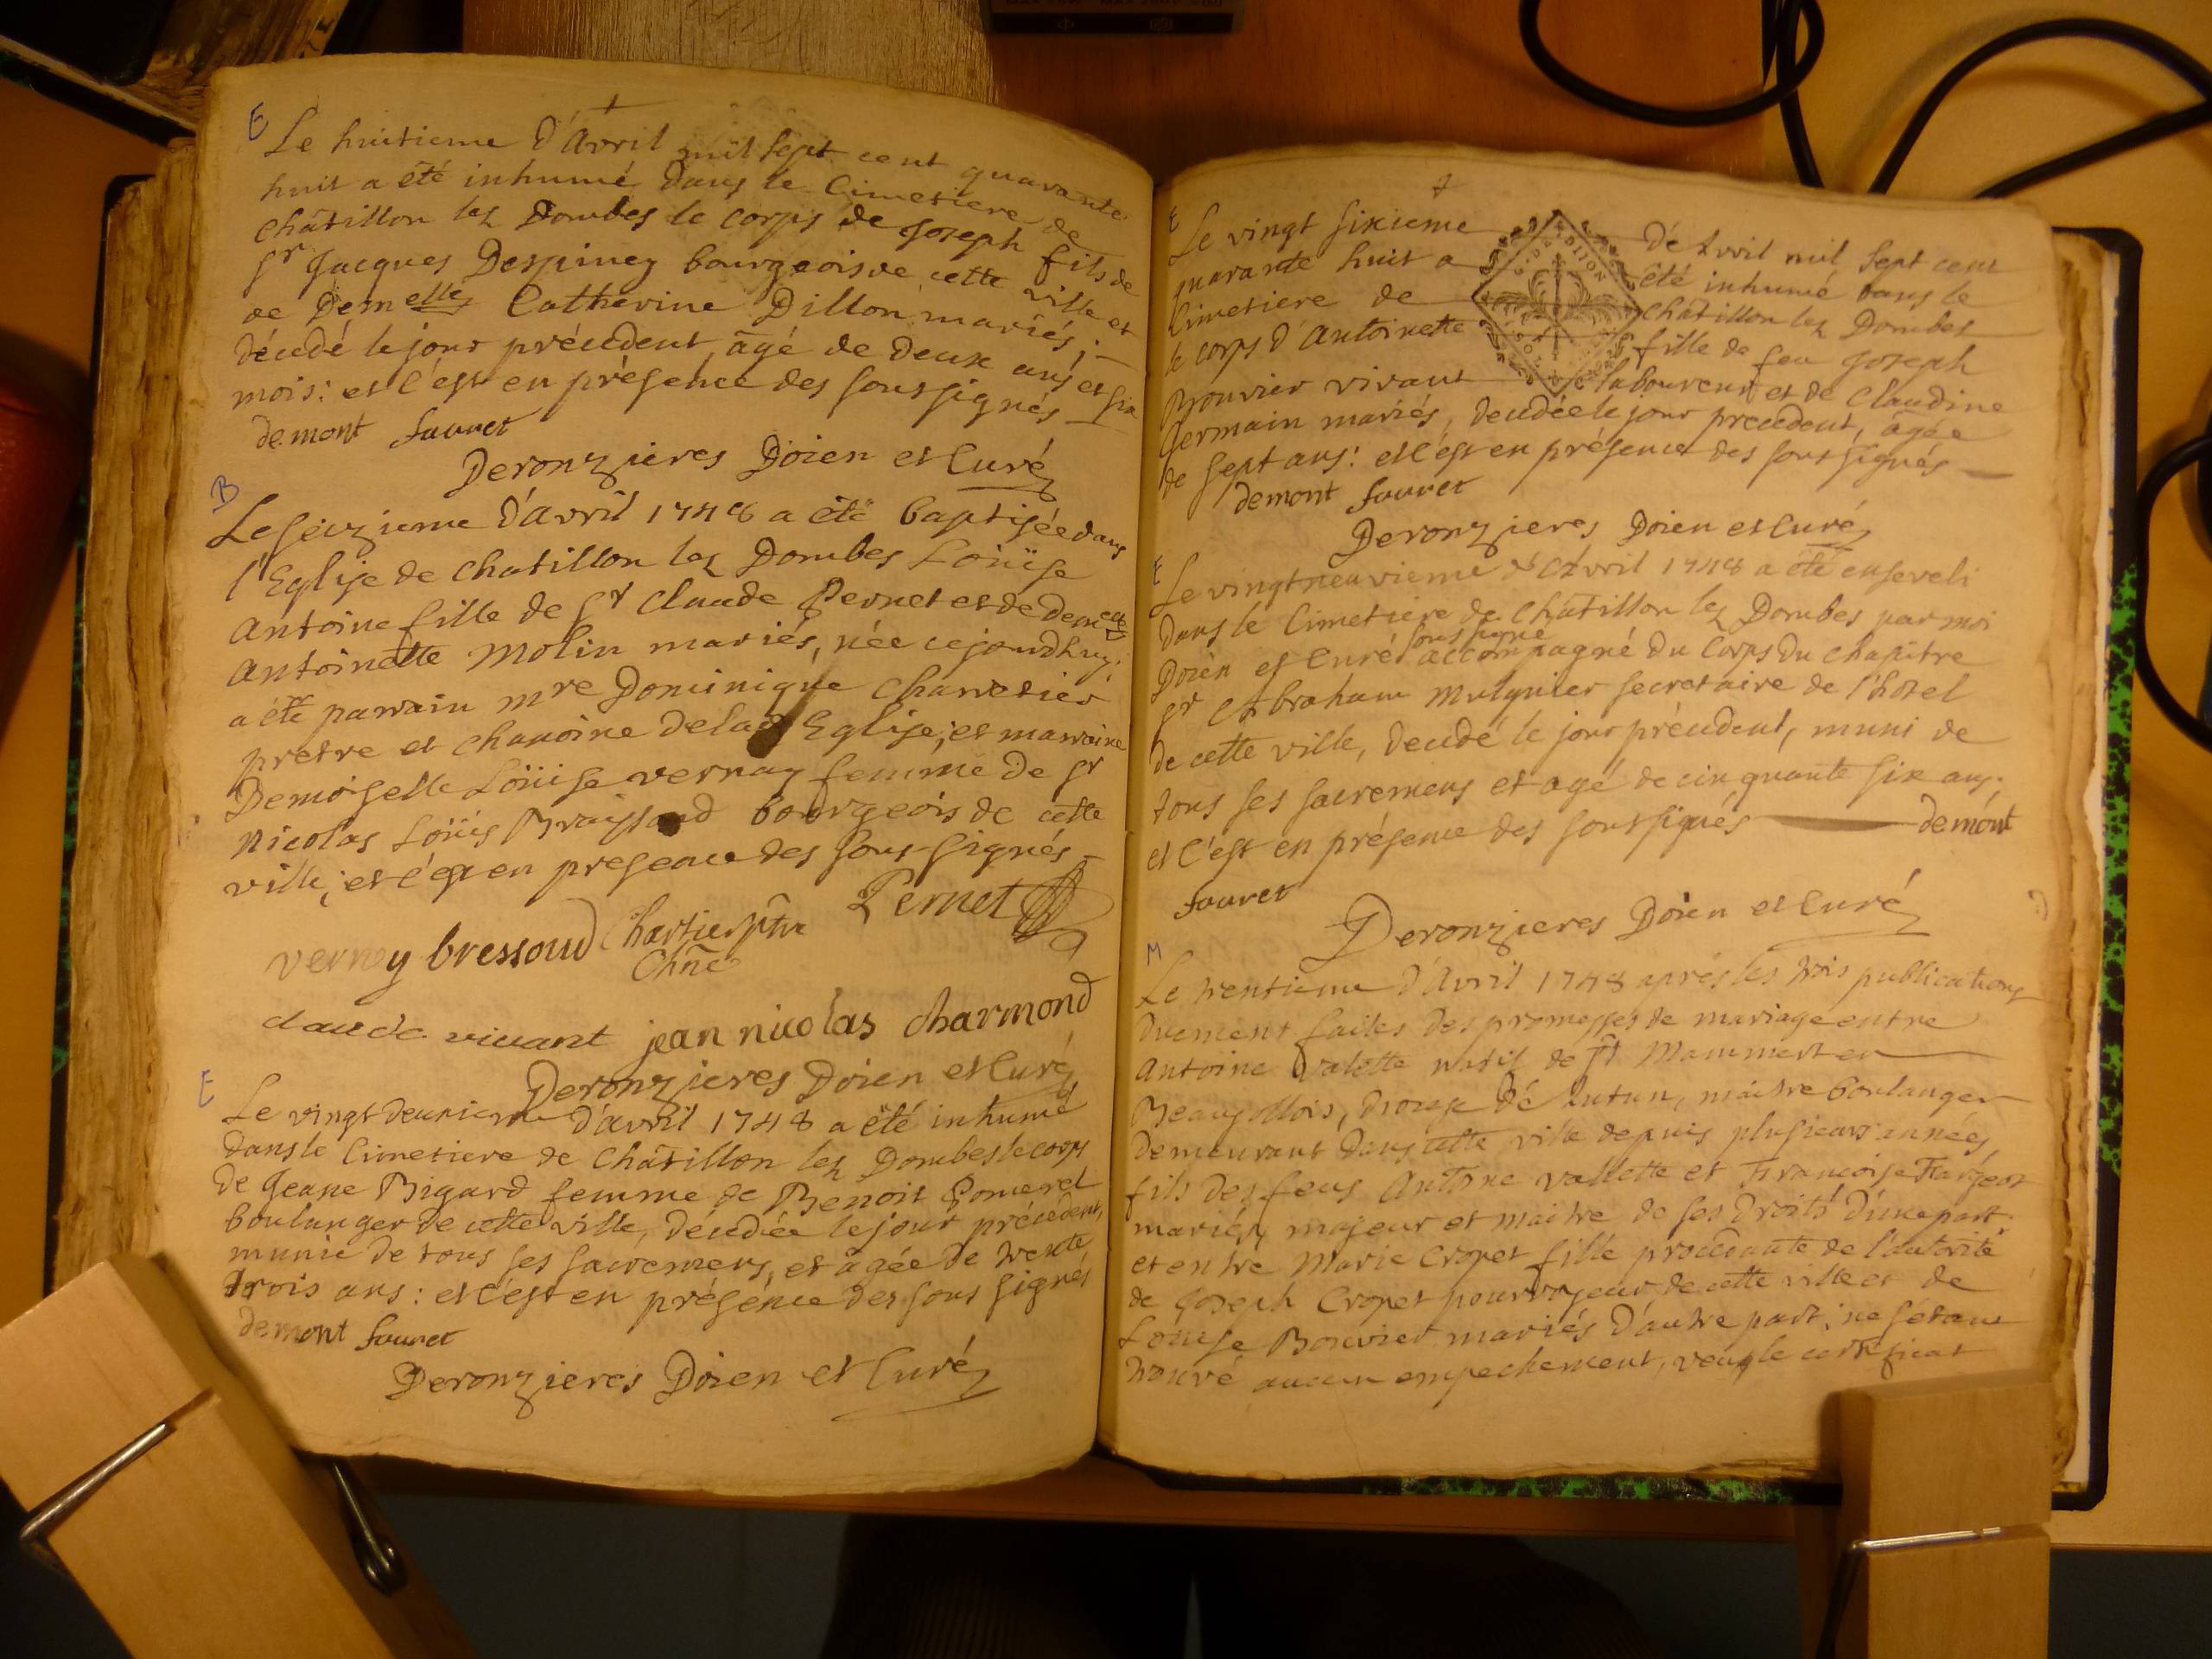 E
Le huitieme d'Avril mil sept cent quarante
huit a été inhumé dans le Cimetiere de
Châtillon lez Dombes le corps de Joseph fils de
sr Jacques Despiney bourgeois de cette ville et
de Demelle Catherine Dillon mariés;
décédé le jour précédent, âgé de deux ans et six
mois: et c'est en présence des soussignés
demont fauret
Deronzieres Doien et Curé
B
Le seizieme d'Avril 1748 a été baptisée dans
l'Eglise de Chatillon lez Dombes Loüise
Antoine fille de sr Claude Pernet et de demelle
Antoinette Molin mariés, née cejourdhuy.
a été parrain mre Dominique Charretier
pretre et chanoine de lad Eglise; et marraine
Demoiselle Loüise vernay femme de sr
Nicolas Loüis Braissaud bourgeois de cette
ville; et c'est en presence des sous-signés
Pernet
vernay bressoud Chartier ptre
Chne
claude vivant jean nicolas charmond
Deronzieres Doien et Curé
E
Le vingt deuxieme d'avril 1748 a été inhumé
dans le Cimetiere de Châtillon lez Dombes le corps
de Jeane Bigard femme de Benoit Pomerel
boulanger de cette ville, décédée le jour précédent,
munie de tous ses sacremens, et âgée de trente
trois ans: et c'est en présence des sous signés
demont fauret
Deronzieres Doien et Curé
E
Le vingt sixieme d'Avril mil sept cent
quarante huit a été inhumé dans le
Cimetiere de Châtillon lez Dombes
le corps d'Antoinette fille de feu Joseph
Bouvier vivant laboureur et de Claudine
Germain mariés, decedée le jour precedent, âgée
de sept ans: et c'est en présence des soussignés
demont fauret
Deronzieres Doien et Curé
E
Le vingtneuvieme d'Avril 1748 a été enseveli
dans le Cimetiere de Châtillon lez Dombes par moi
soussigné
Doien et Curé accompagné du Corps du Chapitre
sr Abraham Mulquier secretaire de l'hotel
de cette ville, decedé le jour précedent, muni de
tous ses sacremens et agé de cinquante six ans;
et c'est en présence des soussignés demont
fauret
Deronzieres Doien et Curé
M
Le trentieme d'Avril 1748 aprés les trois publications
duement faites des promesses de mariage entre
Antoine Valette natif de st Mammert en
Beaujollois, diocese d'Autun, maitre boulanger
demeurant dans cette ville depuis plusieurs années,
fils des feus Antoine Vallette et Francoise Fargeot
mariés, majeur et maitre de ses droits d'une part;
et entre Marie Cropet fille procedante de l'autorité
de Joseph Cropet pourvoyeur de cette ville et de
Loüise Bouvier mariés d'autre part; ne s'étant
trouvé aucun empechement, veu le certificat